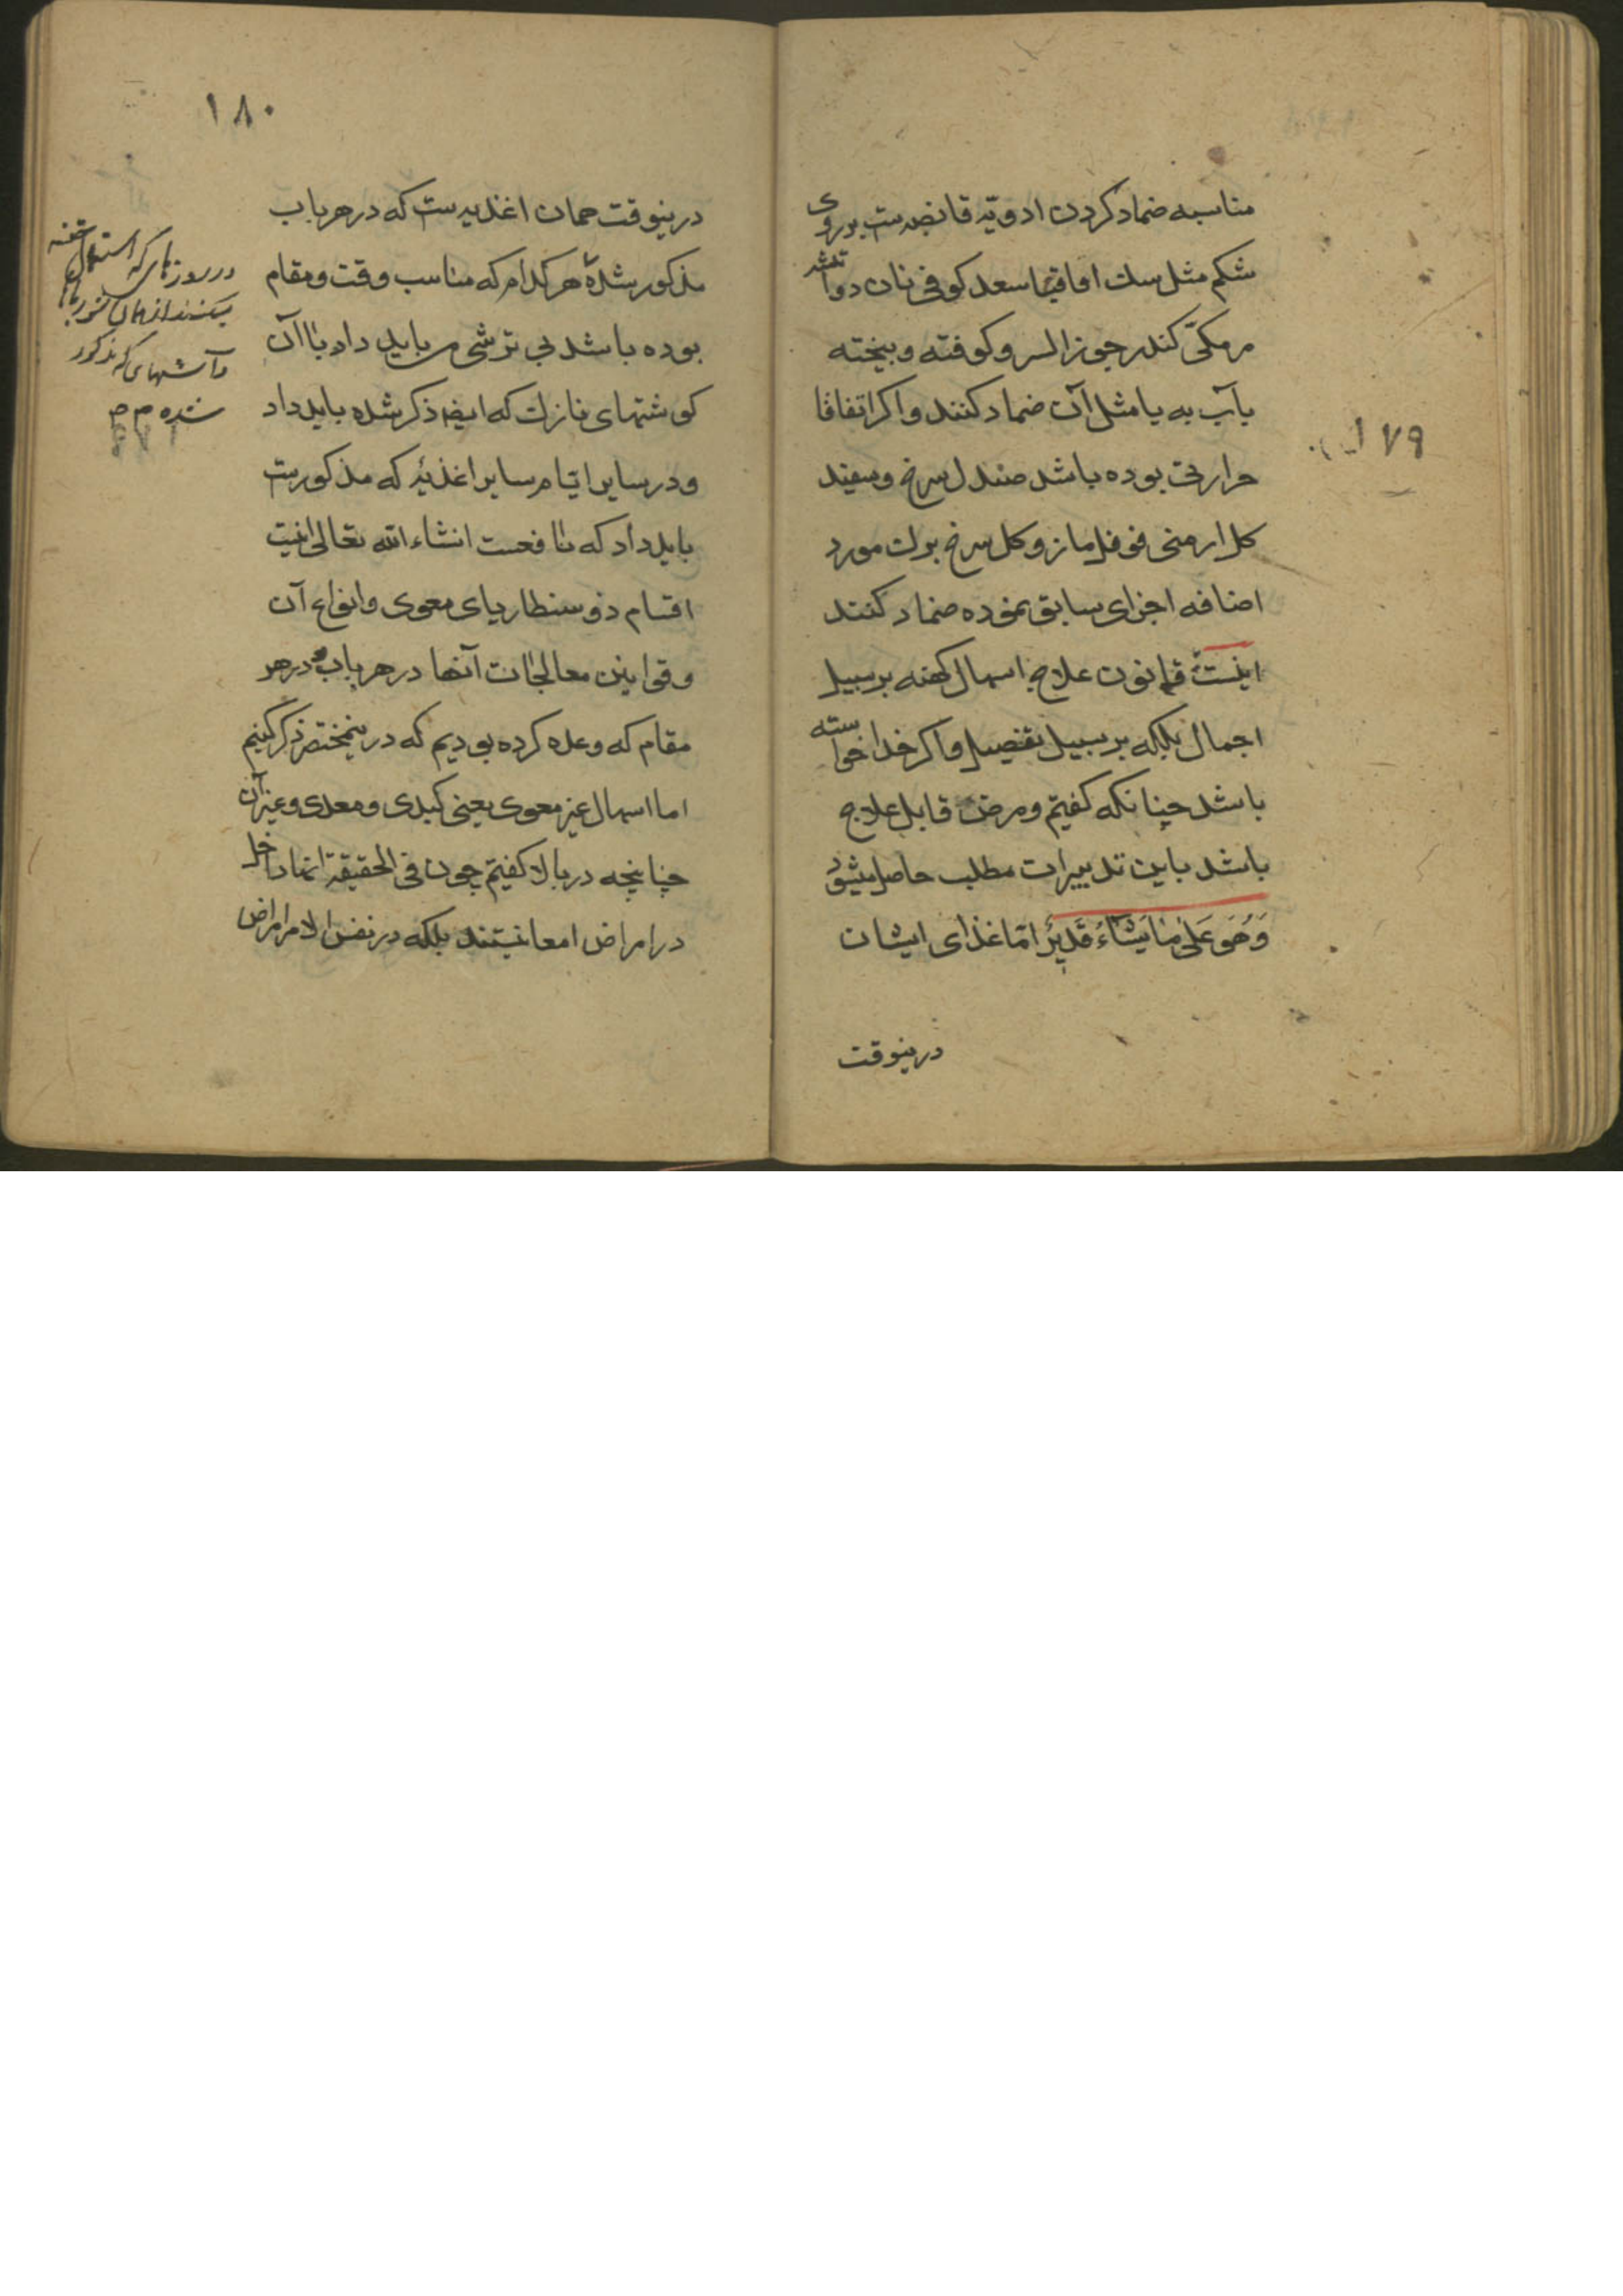 مناسبه ضماد کردن ادویّه قابضه‌ست بر روی
شکم مثل سک اقاقیا سعد کوفی نان دو آتشه
مر مکّی کندر جوز السرو کوفته و بیخته
بآب به یا مثل آن ضماد کنند و اکر اتفاقا
حرارتی بوده باشد صندل سرخ و سفید
کل ارمنی فوفل مازو کل سرخ برک مورد
اضافه اجزای سابق نموده ضماد کنند
اینست قانون علاج اسهال کهنه بر سبیل
اجمال بلکه بر سبیل تفصیل و اکر خدا خواسته
باشد چنانکه کفتیم و مرض قابل علاج
باشد باین تدبیرات مطلب حاصل میشود
وَهُوَ عَلیٰ مٰا یَشٰاءُ قَدیرٌ امّا غذای ایشان
درینوقت
١٧٩
١٨٠
درینوقت همان اغذیه‌ست که در هر باب
مذکور شده هر کدام که مناسب وقت و مقام
بوده باشد بی ترشی باید داد با آن
کوشتهای نازک که ایضا ذکر شده باید داد
و در سایر ایّام سایر اغذیه که مذکورست
باید داد که نافعست انشاء الله تعالی اینست
اقسام ذوسنطاریای معوی و انواع آن
و قوانین معالجات آنها در هر باب و در هر
مقام که وعده کرده بودیم که درینمختصر ذکر کنیم
اما اسهال غیر معوی یعنی کبدی و معدی و غیر آن
چنانچه در بالا کفتیم چون فی الحقیقة اینها داخل
در امراض امعا نیستند بلکه در نفس الامر امراض
در روزهای که استعمال حقنه
میکنند از همان شوربا‌ها
و آشهای که مذکور
شده م م